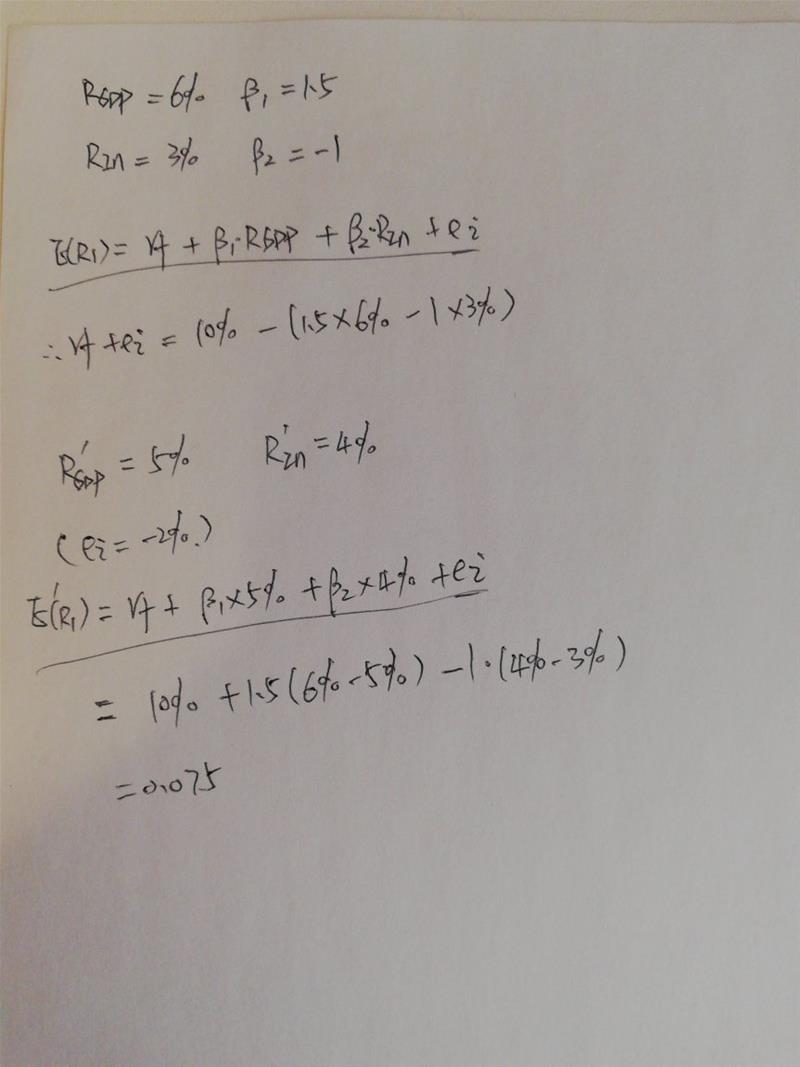 RGDP = 6% β1 = 1.5
RIn = 3% β2 = -1
E(R1) = rf + β1·RGDP + β2·RIn + ei
∴ rf + ei = 10% - (1.5×6% - 1×3%)
R'GDP = 5% R'In = 4%
(ei = -2%.)
E'(R1) = rf + β1×5% + β2×4% + ei
= 10% + 1.5(6%-5%) - 1·(4%-3%)
= 0.075